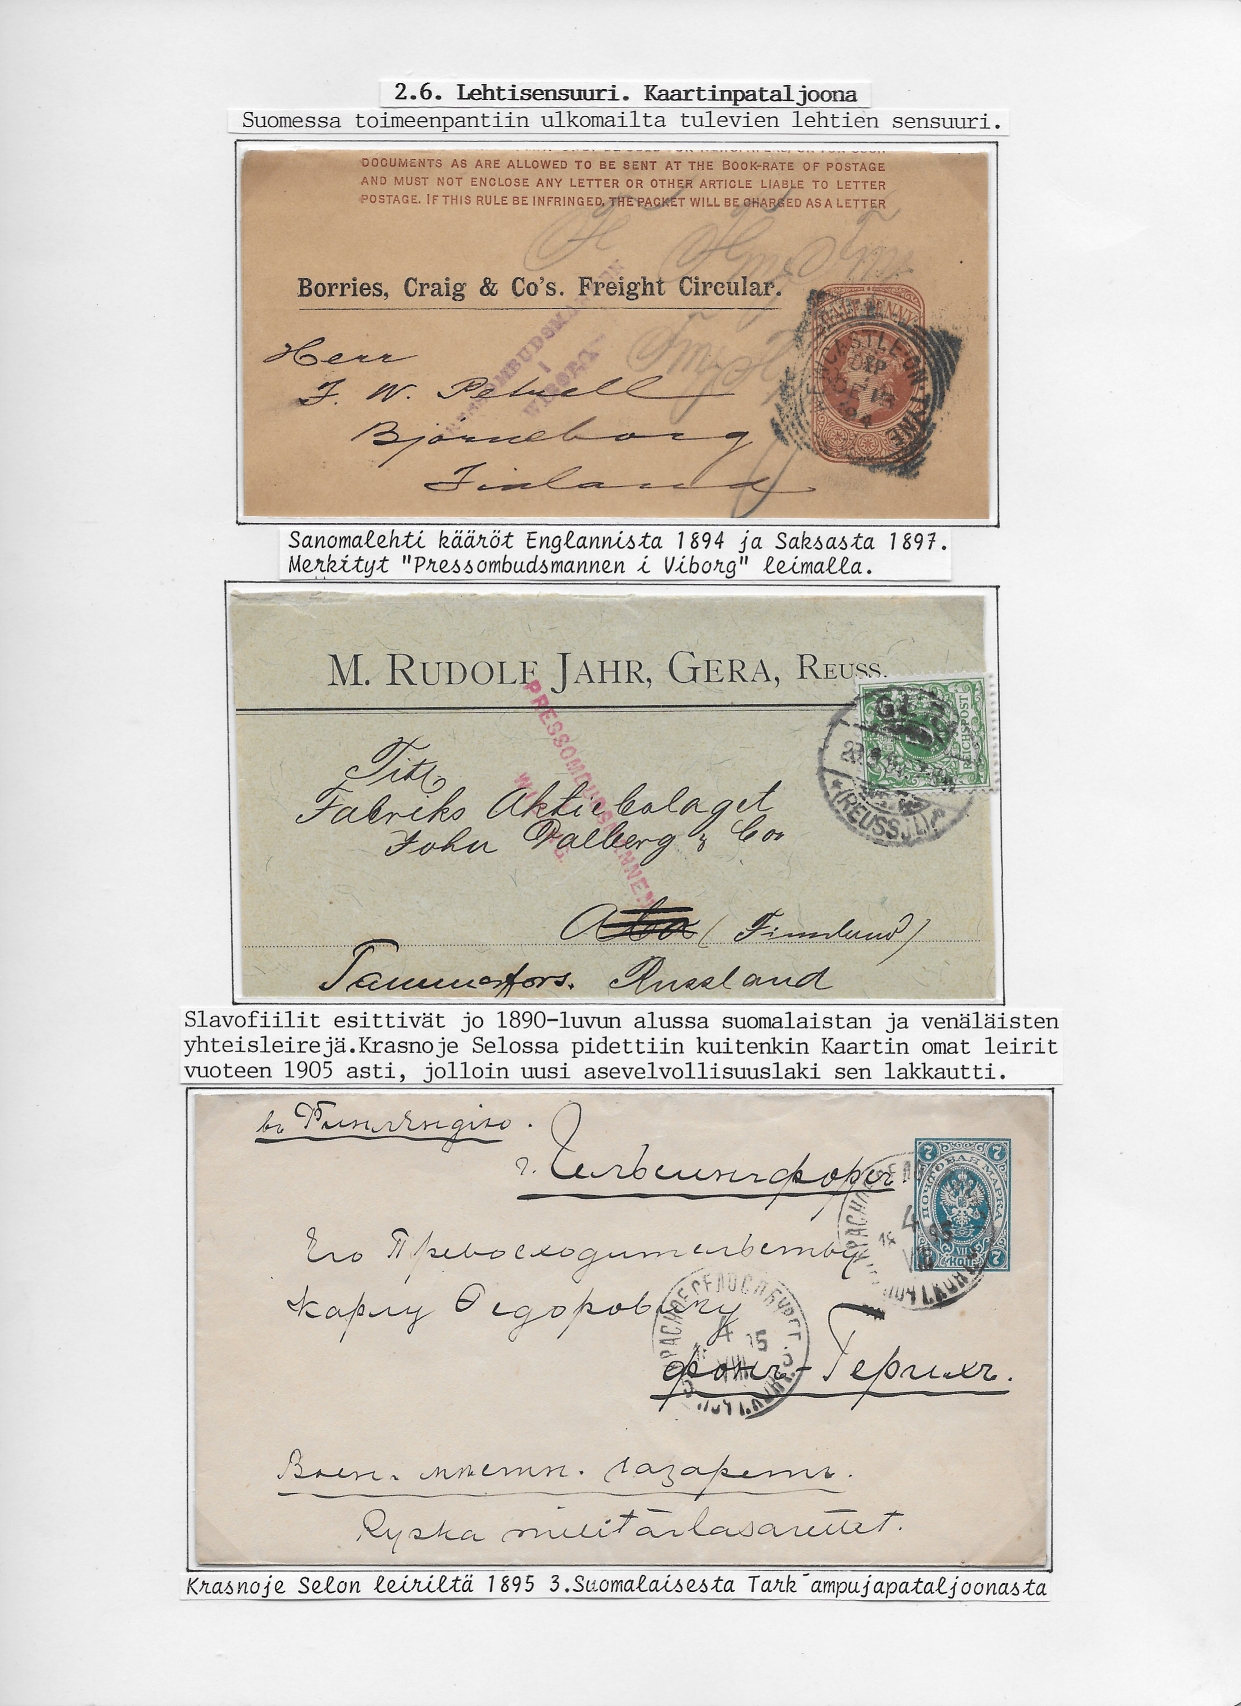 2.6. Lehtisensuuri. Kaartinpataljoona
Suomessa toimeenpantiin ulkomailta tulevien lehtien sensuuri.
DOCUMENTS AS ARE ALLOWED TO BE SENT AT THE BOOK-RATE OF POSTAGE
AND MUST NOT ENCLOSE ANY LETTER OR OTHER ARTICLE LIABLE TO LETTER
POSTAGE. IF THIS RULE BE INFRINGED, THE PACKET WILL BE CHARGED AS A LETTER
Borries, Craig & Co's. Freight Circular.
Herr
F. W. Petrell
Björneborg
Finland
I
WIBORG
NEWCASTLE-ON-TYNE
Sanomalehti kääröt Englannista 1894 ja Saksasta 1897.
Merkityt "Pressombudsmannen i Viborg" leimalla.
M. RUDOLF JAHR, GERA, REUSS.
PRESSOMBUDSMANNEN
REICHSPOST
(REUSS J.L)
Titl
Fabriks Aktiebolaget
John Dalberg & Co
Abo (Finnland)
Tammerfors. Russland
Slavofiilit esittivät jo 1890-luvun alussa suomalaistan ja venäläisten
yhteisleirejä.Krasnoje Selossa pidettiin kuitenkin Kaartin omat leirit
vuoteen 1905 asti, jolloin uusi asevelvollisuuslaki sen lakkautti.
въ Финляндiю.
г. Гельсингфорсъ
7 7
ПОЧТОВАЯ МАРКА
VII КОП.
7
Его Превосходительству
Карлу Ѳедоровичу
КРАСНОЕ СЕЛО С.П.БУРГ.Г.
4
VIII
фонъ-Герихъ.
Воен. мѣстн. лазаретъ.
Ryska militärlasarettet.
Krasnoje Selon leiriltä 1895 3.Suomalaisesta Tark´ampujapataljoonasta